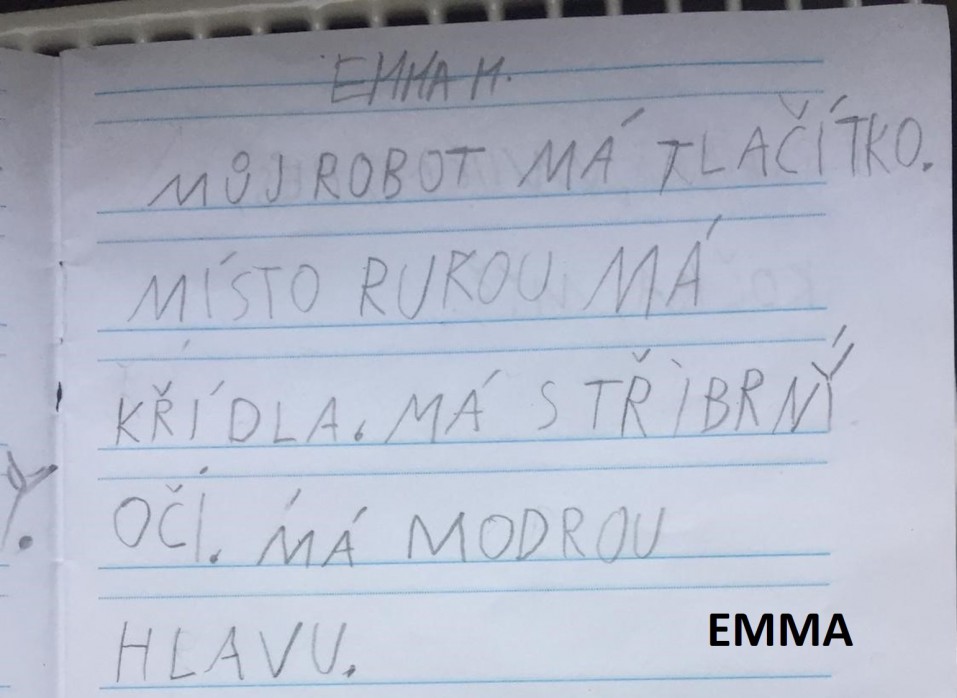 EMMA M.
MŮJ ROBOT MÁ TLAČÍTKO.
MÍSTO RUKOU MÁ
KŘÍDLA. MÁ STŘÍBRNÝ
OČÍ. MÁ MODROU
HLAVU.
EMMA